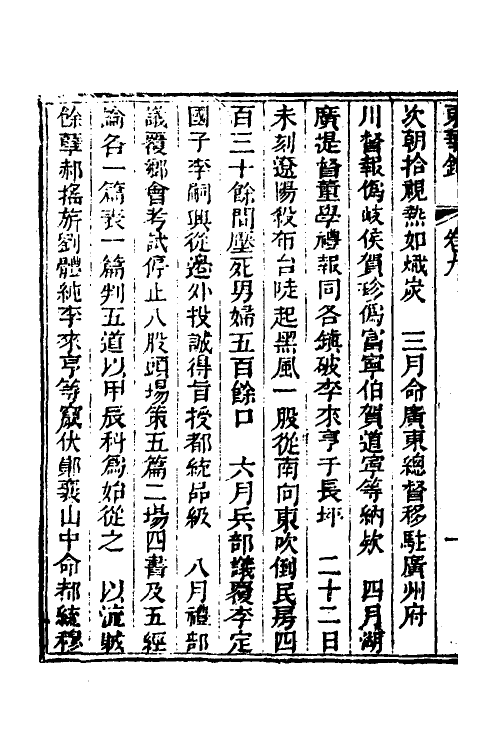 東華錄 卷九 一
次朝拾視熱如熾炭　三月命廣東總督移駐廣州府
川督報僞岐侯賀珍僞富寧伯賀道寧等納欵　四月湖
廣提督董學禮報同各鎮破李來亨于長坪　二十二日
未刻遼陽殺布台陡起黑風一股從南向東吹倒民房四
百三十餘間壓死男婦五百餘口　六月兵部議覆李定
國子李嗣興從邊外投誠得旨授都統品級　八月禮部
議覆鄉會考試停止八股頭場策五篇二場四書及五經
論各一篇表一篇判五道以甲辰科爲始從之　以流賊
餘孽郝搖旂劉體純李來亨等竄伏鄖襄山中命都統穆